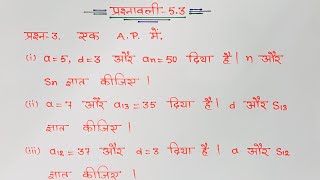 प्रश्नावली- 5.3
प्रश्न-3. एक A.P. में:
(i) a=5, d=3 और an=50 दिया है। n और
Sn ज्ञात कीजिए।
(ii) a=7 और a13=35 दिया है। d और S13
ज्ञात कीजिए।
(iii) a12=37 और d=3 दिया है। a और S12
ज्ञात कीजिए।